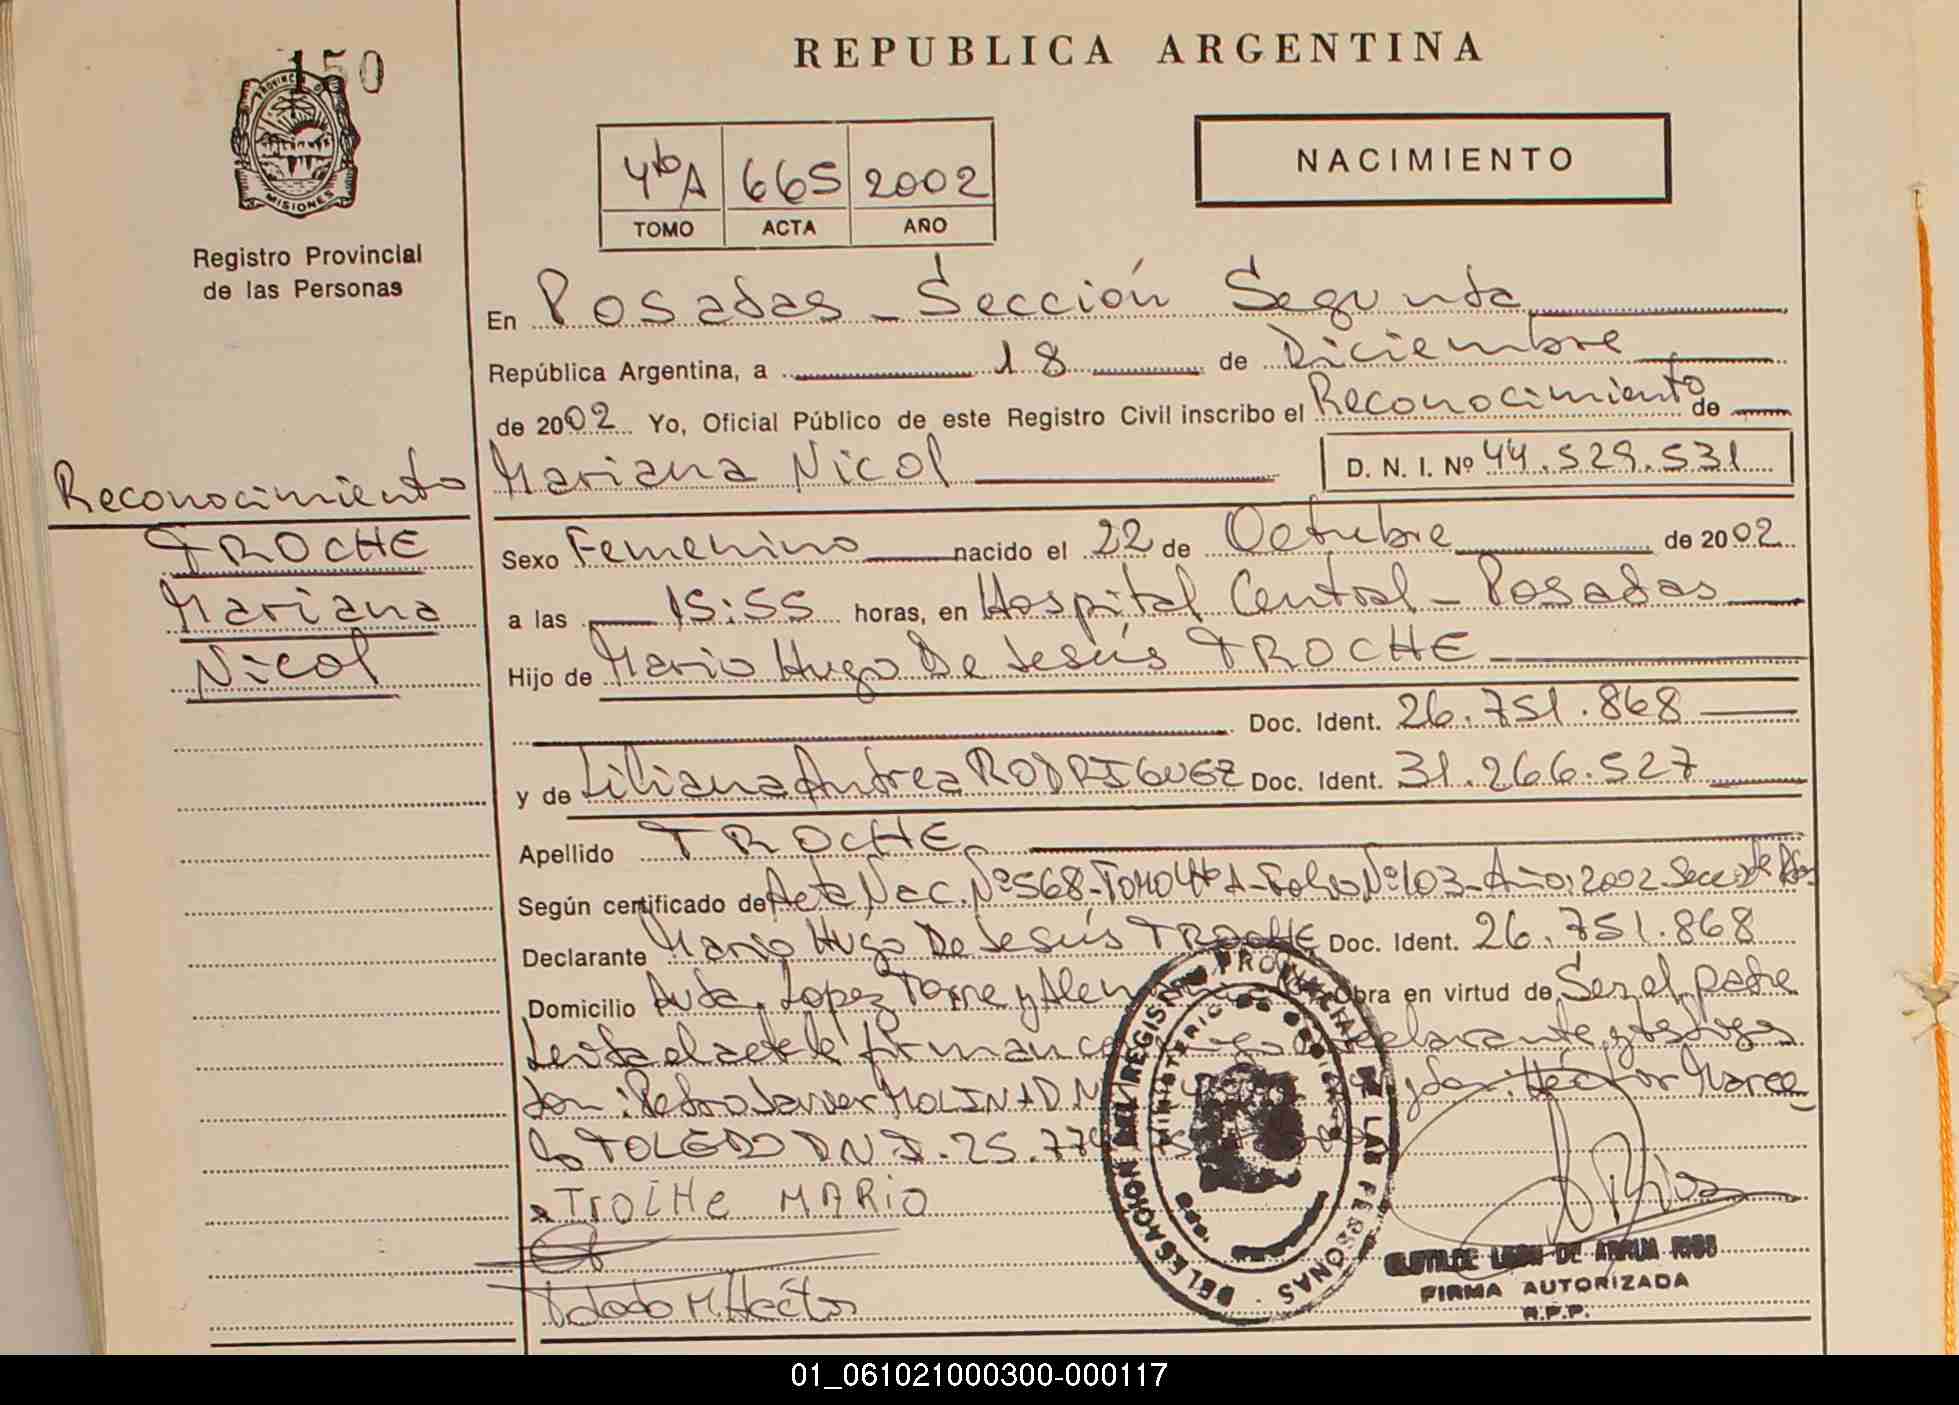 150
REPUBLICA ARGENTINA
PROVINCIA DE
MISIONES
Registro Provincial
de las Personas
4toA 665 2002
TOMO ACTA AÑO
NACIMIENTO
En Posadas - Sección Segunda
República Argentina, a 18 de Diciembre
de 2002 Yo, Oficial Público de este Registro Civil inscribo el Reconocimiento de
Mariana Nicol D. N. I. Nº 44.529.531
Reconocimiento
TROCHE
Mariana
Nicol
Sexo Femenino nacido el 22 de Octubre de 2002
a las 15:55 horas, en Hospital Central - Posadas
Hijo de Mario Hugo De Jesús TROCHE
Doc. Ident. 26.751.868
y de Liliana Andrea RODRIGUEZ Doc. Ident. 31.266.527
Apellido TROCHE
Según certificado de Acta Nac. Nº568-Tomo 4to A-Folio Nº103-Año:2002
Declarante Mario Hugo De Jesús TROCHE Doc. Ident. 26.751.868
Domicilio Avda. Lopez Torre y Obra en virtud de Ser el padre
Leída el acta la firman declarante y testigos
don: Pedro Javier MOLINA DNI Héctor Marce
lo TOLEDO DNI. 25.774
TROCHE MARIO
Toledo M. Héctor
DELEGACION DEL REGISTRO PROVINCIAL DE LAS PERSONAS
MINISTERIO DE GOBIERNO
FIRMA AUTORIZADA
R.P.P.
01_061021000300-000117